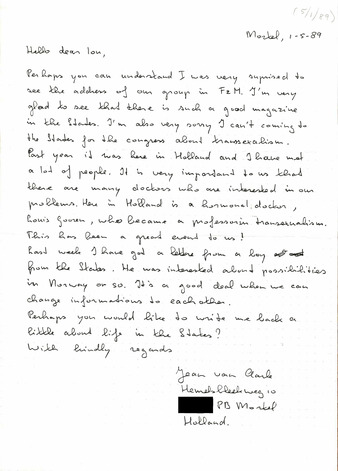 (5/1/89)
Morkel, 1-5-89
Hello dear Lou,
Perhaps you can understand I was very suprised to
see the address of our group in FzM. I'm very
glad to see that there is such a good magazine
in the States. I'm also very sorry I can't coming to
the States for the congress about transsexalism.
Past year it was here in Holland and I have met
a lot of people. It is very important to us that
there are many doctors who are interested in our
problems. Here in Holland is a hormonal doctor,
Louis Gooren, who became a professor in transsexualism.
This has been a great event to us!
Last week I have got a lettre from a boy
from the States. He was interested about possibilities
in Norway or so. It's a good deal when we can
change informations to eachother.
Perhaps you would like to write me back a
little about life in the States?
With kindly regards
Jean van
10
PB Morkel
Holland.